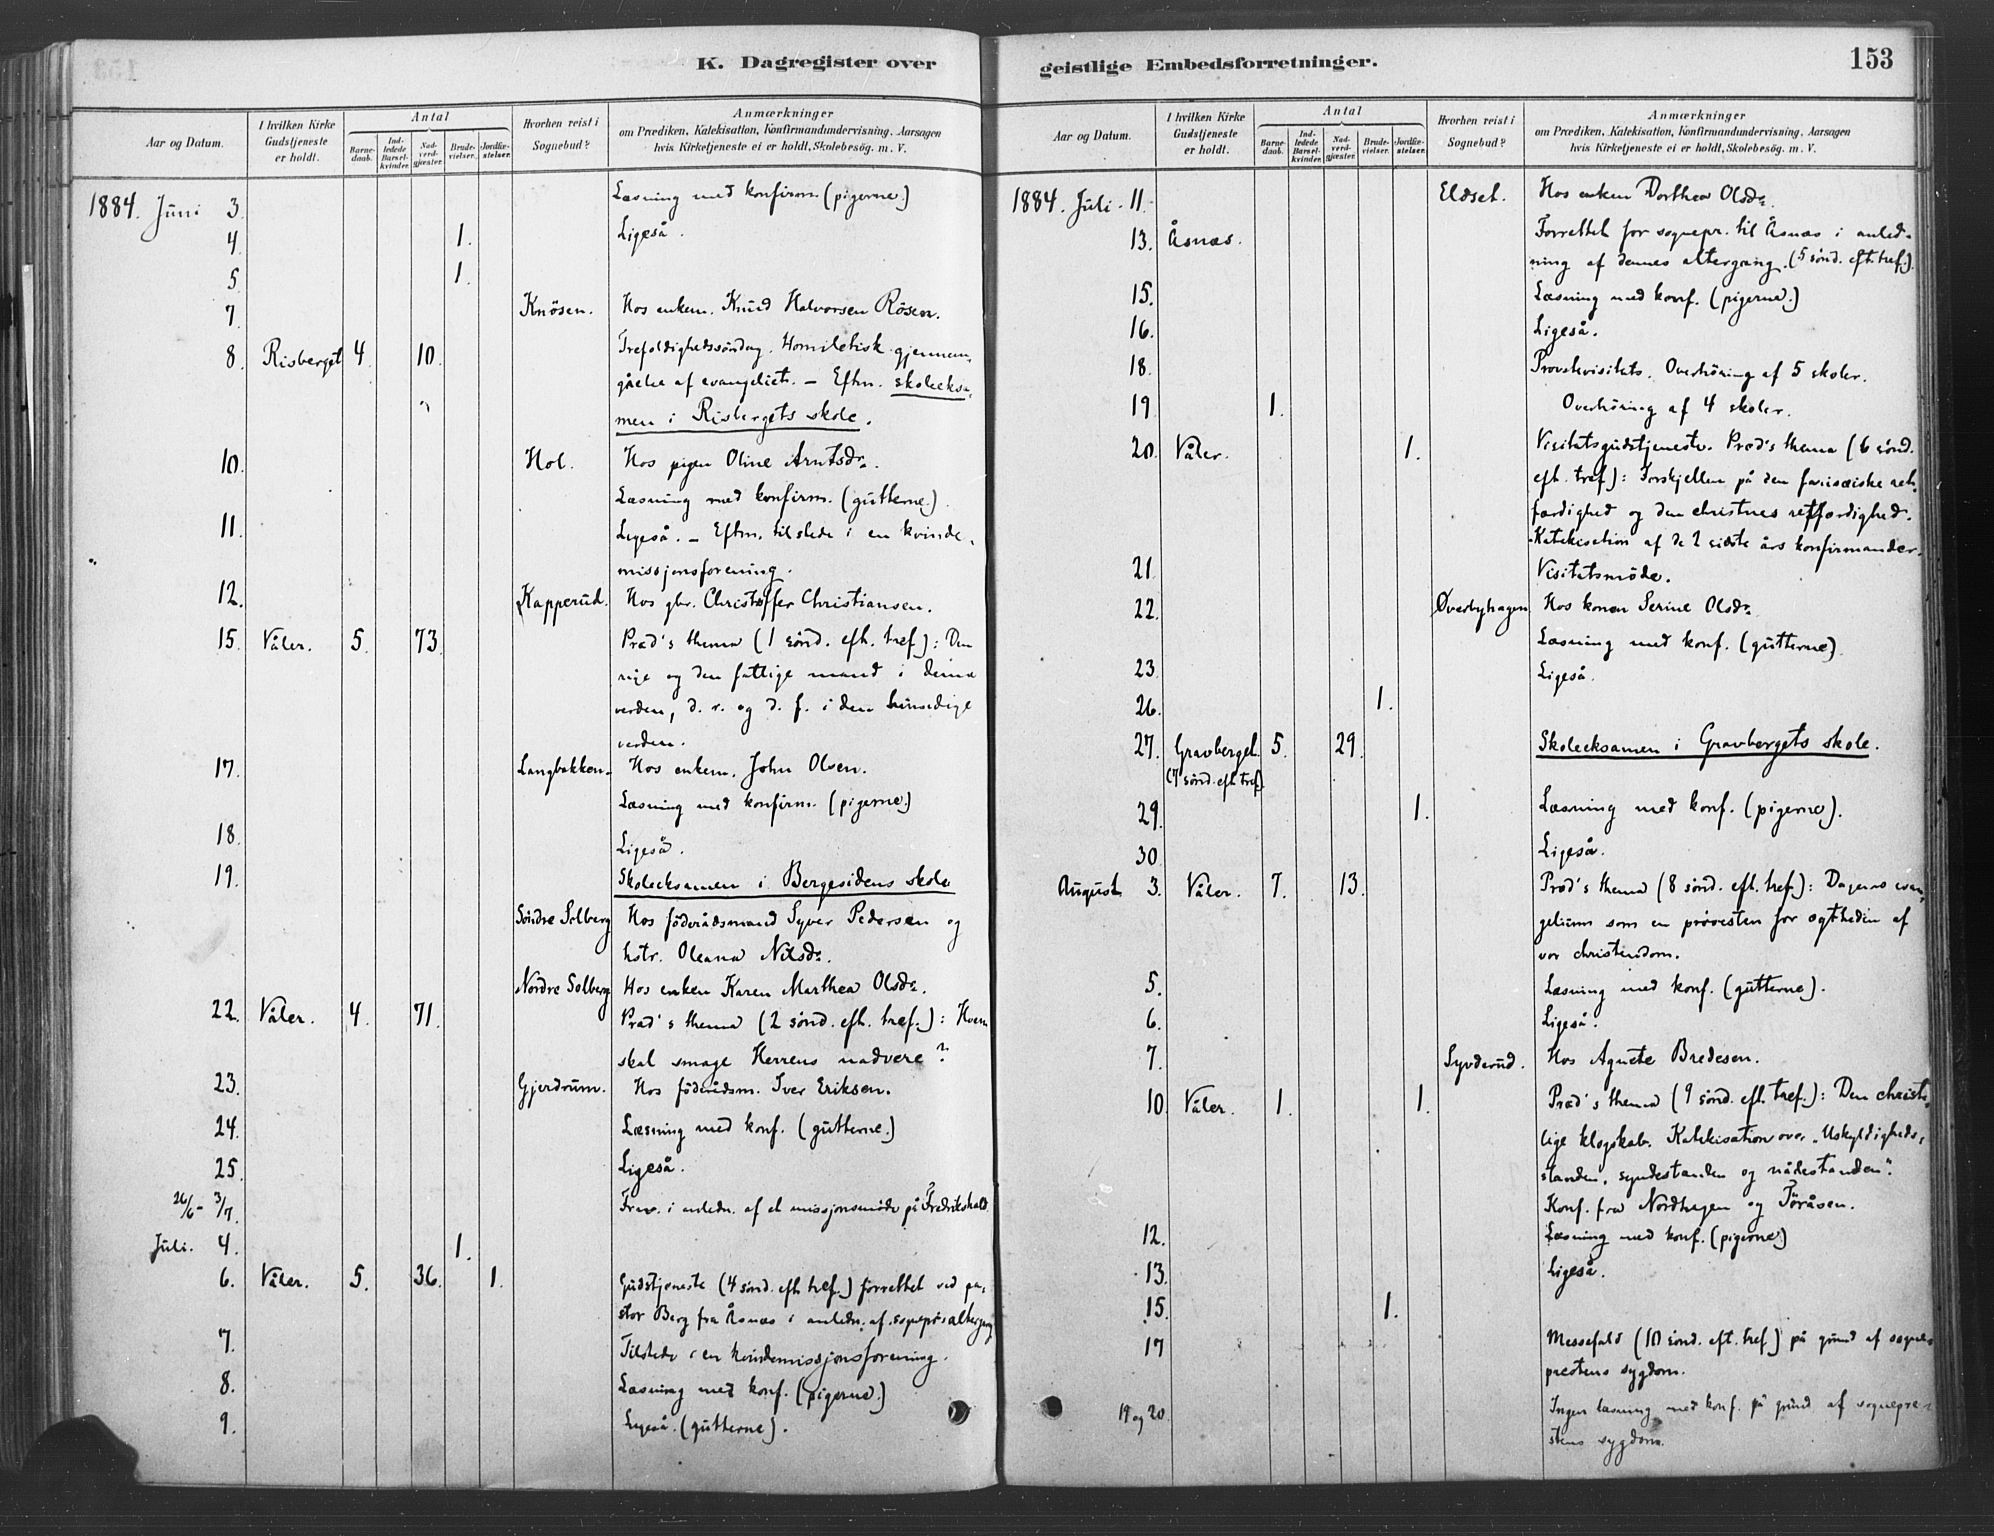 K. Dagregister over
Aar og Datum.
I hvilken Kirke Gudstjeneste er holdt.
Antal
Barne-daab.
Ind-ledede Barsel-kvinder.
Nad-verd-gjæster.
Brude-vielser.
Jordfæ-stelser.
Hvorhen reist i Sognebud?
Anmærkninger
om Prædiken, Katekisation, Konfirmandundervisning, Aarsagen
hvis Kirketjeneste ei er holdt, Skolebesøg. m. V.
1884. Juni 3. Læsning med konfirm. (pigerne.)
4. 1. Ligeså.
5. 1.
7. Knösen. Hos enkem. Knud Halvorsen Rösen.
8. Risberget 4. 10. Trefoldighedssöndag. Homiletisk gjennem-
gåelse af evangeliet. – Eftm. skoleeksa-
men i Risbergets skole.
10. Hol. Hos pigen Oline Arntsdr.
Læsning med konfirm. (gutterne.)
11. Ligeså. – Eftm. tilstede i en kvinde-
missjonsforening.
12. Kapperud. Hos gbr. Christoffer Christiansen.
15. Våler. 5. 73. Præd's thema (1 sönd. eft. tref.): Den
rige og den fattige mand i denne
verden, d. r. og d. f. i den hinsidige
verden.
17. Langbakken. Hos enkem. John Olsen.
Læsning med konfirm. (pigerne.)
18. Ligeså.
19. Skoleeksamen i Bergesidens skole
Söndre Solberg Hos föderådsmand Syver Pedersen og
hstr. Oleana Nilsdr.
Nordre Solberg Hos enken Karen Marthea Olsdr.
22. Våler. 4. 71. Præd's thema (2 sönd. eft. tref.): Hvem
skal smage Herrens nadvere?
23. Gjerdrum. Hos föderådsm. Iver Eriksen.
24. Læsning med konf. (gutterne.)
25. Ligeså.
26/6 – 3/7. i anledn. af et missjonsmöde på Fredrikshald.
Juli. 4. 1.
6. Våler. 5. 36. 1. Gudstjeneste (4 sönd. eft. tref.) forrettet ved pa-
stor Berg fra Åsnæs i anledn. af sognepr's altergang
7. Tilstede i en kvindemissjonsforening.
8. Læsning med konf. (pigerne.)
9. Ligeså. (gutterne).
geistlige Embedsforretninger.
153
Aar og Datum.
I hvilken Kirke Gudstjeneste er holdt.
Antal
Barne-daab.
Ind-ledede Barsel-kvinder.
Nad-verd-gjæster.
Brude-vielser.
Jordfæ-stelser.
Hvorhen reist i Sognebud?
Anmærkninger
om Prædiken, Katekisation, Konfirmandundervisning, Aarsagen
hvis Kirketjeneste ei er holdt, Skolebesøg. m. V.
1884. Juli. 11. Eldset. Hos enken Dorthea Olsdr.
13. Åsnæs. Forrettet for sognepr. til Åsnæs i anled-
ning af dennes altergang. (5 sönd. eft. tref.).
15. Læsning med konf. (pigerne.)
16. Ligeså.
18. Provstevisitats. Overhöring af 5 skoler.
19. 1. Overhöring af 4 skoler.
20. Våler. 1. Visitatsgudstjeneste. Præd's thema (6 sönd.
eft. tref.): Forskjellen på den farisæiske ret-
færdighed og den christnes retfærdighed.
Katekisation af de 2 sidste års konfirmander.
21. Visitatsmöde.
22. Øverbyhagen Hos konen Serine Olsdr.
Læsning med konf. (gutterne.)
23. Ligeså.
26. 1.
27. Gravberget 5. 29. Skoleeksamen i Gravbergets skole.
(7 sönd. eft tref.)
29. 1. Læsning med konf. (pigerne.)
30. Ligeså.
August 3. Våler. 7. 13. Præd's thema (8 sönd. eft. tref.): Dagens evan-
gelium som en prövesten for ægtheden af
vor christendom.
5. Læsning med konf. (gutterne).
6. Ligeså.
7. Syvderud. Hos Agnete Bredesen.
10. Våler. 1. 1. Præd's thema (9 sönd. eft. tref.): Den christe-
lige klogskab. Katekisation over „Uskyldigheds-
standen, syndestanden og nådestanden".
Konf. fra Nordhagen og Töråsen.
12. Læsning med konf. (pigerne.)
13. Ligeså.
15. 1.
17 Messefald (10 sönd. eft. tref.) på grund af sogne-
prestens sygdom.
19 og 20. Ingen læsning med konf. på grund af sognepre-
stens sygdom.